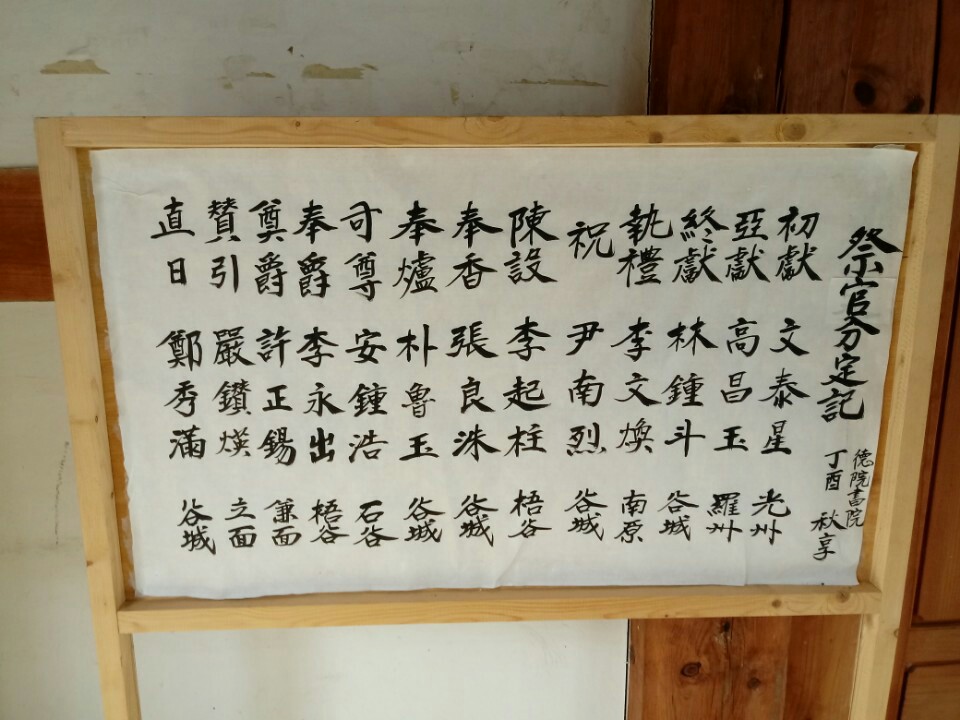 祭官分定記
德院書院
丁酉 秋享
初獻 文泰星 光州
亞獻 高昌玉 羅州
終獻 林鍾斗 谷城
執禮 李文煥 南原
祝 尹南烈 谷城
陳設 李起柱 梧谷
奉香 張良洙 谷城
奉爐 朴魯玉 谷城
司尊 安鍾浩 石谷
奉爵 李永出 梧谷
奠爵 許正錫 兼面
贊引 嚴鑽煐 立面
直日 鄭秀滿 谷城